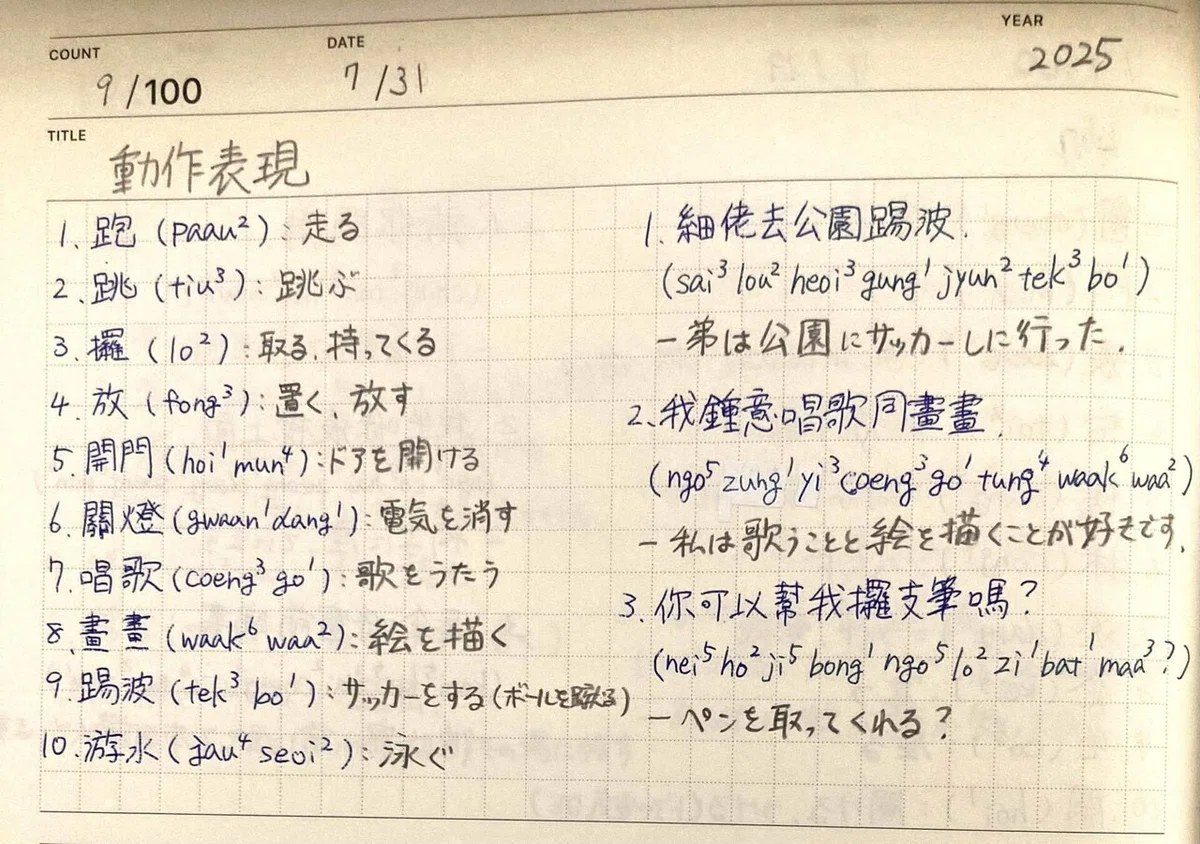 COUNT 9/100 DATE 7/31 YEAR 2025
TITLE 動作表現
1. 跑 (paau²) : 走る
2. 跳 (tiu³) : 跳ぶ
3. 攞 (lo²) : 取る、持ってくる
4. 放 (fong³) : 置く、放す
5. 開門 (hoi¹ mun⁴) : ドアを開ける
6. 關燈 (gwaan¹ dang¹) : 電気を消す
7. 唱歌 (coeng³ go¹) : 歌をうたう
8. 畫畫 (waak⁶ waa²) : 絵を描く
9. 踢波 (tek³ bo¹) : サッカーをする (ボールを蹴る)
10. 游水 (jau⁴ seoi²) : 泳ぐ
1. 細佬去公園踢波.
(sai³ lou² heoi³ gung¹ jyun² tek³ bo¹)
- 弟は公園にサッカーしに行った.
2. 我鍾意唱歌同畫畫.
(ngo⁵ zung¹ yi³ coeng³ go¹ tung⁴ waak⁶ waa²)
- 私は歌うことと絵を描くことが好きです.
3. 你可以幫我攞支筆嗎?
(nei⁵ ho² ji⁵ bong¹ ngo⁵ lo² zi¹ bat¹ maa³?)
- ペンを取ってくれる?